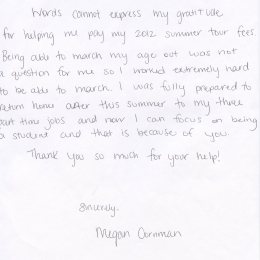 Words cannot express my gratitude
for helping me pay my 2012 summer tour fees.
Being able to march my age out was not
a question for me so I worked extremely hard
to be able to march. I was fully prepared to
return home after this summer to my three
part time jobs and now I can focus on being
a student and that is because of you.
Thank you so much for your help!
Sincerely,
Megan